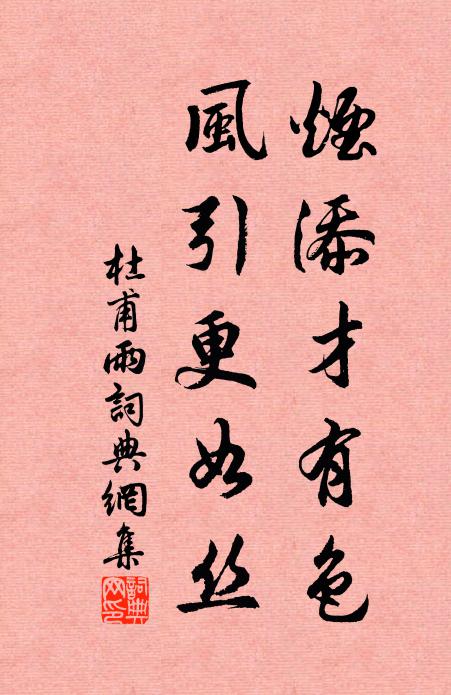 煙添才有色
風引更如丝
杜甫雨詞典網集
詞典網印